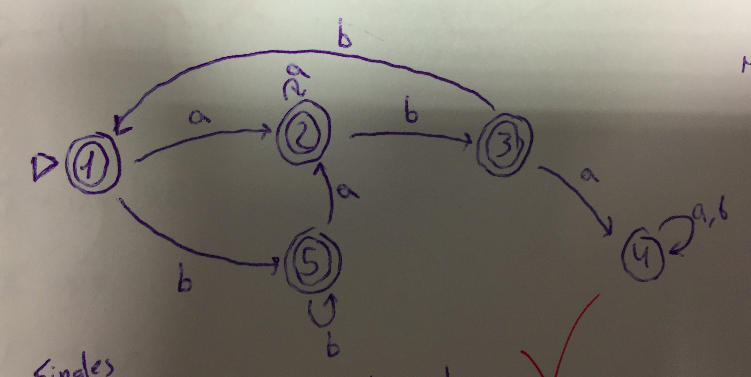 b
a
a
b
1
2
3
a
a
4
a,b
b
5
b
Singles